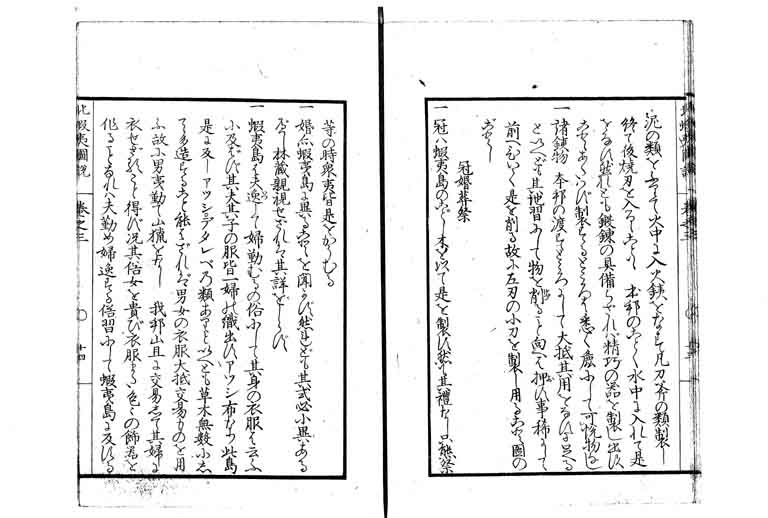 泥の類を以て火中に入火鉄となす凡刀斧の類製し
終て後焼刃を入るゝこと本邦のことく水中に入れて是
をなすといへとも鍛錬の具備らされハ精巧の器を製し出す
ことあたハす製するところ悉く麁にして可悦物なし
一 諸鉄物本邦の渡すところにして大抵其用となすに足る
といへとも其地習にして物を削ること向へ押す事稀にして
前へむいて是を削る故に左刃の小刀を製し用ること図の
ことし
冠婚葬祭
一 冠ハ蝦夷島のことし木を以て是を製す然も其禮なし只熊祭
北蝦夷図説 巻之三 十四
等の時衆夷皆是をかむる
一 婚ハ蝦夷島に異ることを聞かす然とも其式必小異ある
へし林蔵親視せされハ其詳をしらす
一 蝦夷島ハ夫逸して婦勤むるの俗にして其身の衣服ハ云ふ
に及はす其夫其子の服皆一婦の織出すアツシ布なり此島
是に反しアツシテタレへの類ありといへとも草木無数にし
て多造すること能ハされハ男女の衣服大抵交易ものを用
ふ故に男夷勤て山猟をなし我邦山旦に交易して其婦に
衣せされハ得す况其俗女を貴ひ衣服より色々の飾器を
作ることなれハ夫勤め婦逸するの俗習にして蝦夷島に反する